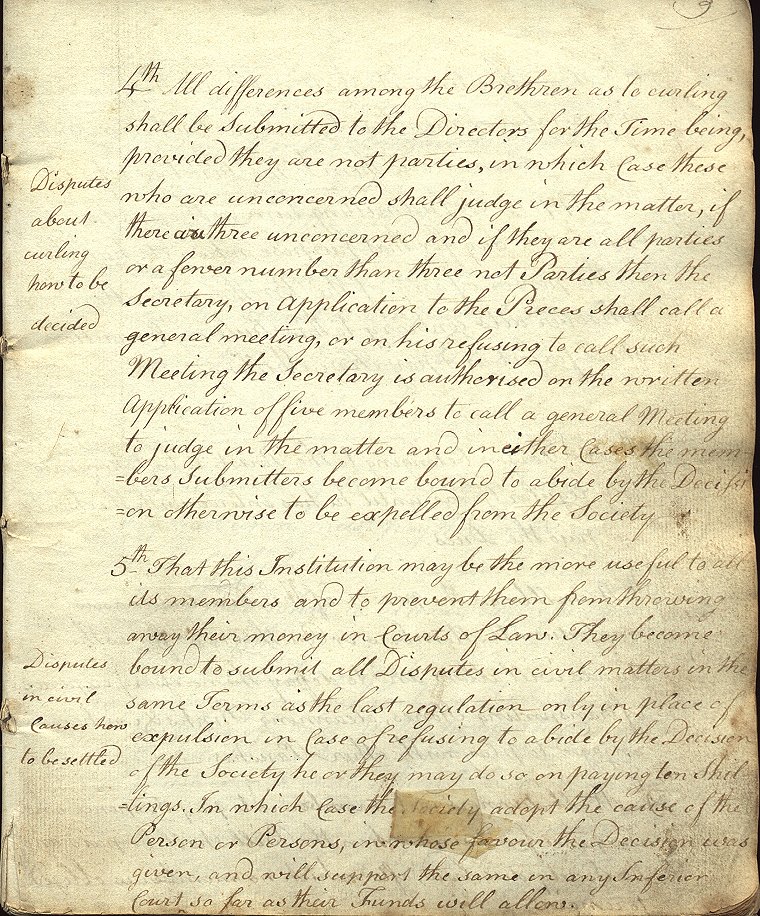 3
4th All differences among the Brethren as to curling
shall be Submitted to the Directors for the Time being,
provided they are not parties, in which Case these
who are unconcerned shall judge in the matter, if
there are three unconcerned and if they are all parties
or a fewer number than three not Parties then the
Secretary, on Application to the Preces shall call a
general meeting, or on his refusing to call such
Meeting the Secretary is authorised on the written
Application of five members to call a general Meeting
to judge in the matter and in either Cases the mem-
=bers Submitters become bound to abide by the Decisi
=on otherwise to be expelled from the Society
Disputes
about
curling
how to be
decided
5th That this Institution may be the more useful to all
its members and to prevent them from throwing
away their money in Courts of Law. They become
bound to submit all Disputes in civil matters in the
same Terms as the last regulation only in place of
expulsion in Case of refusing to abide by the Decision
of the Society he or they may do so on paying ten Shil-
=lings. In which Case the Society adopt the cause of the
Person or Persons, in whose favour the Decision was
given, and will support the same in any Inferior
Court so far as their Funds will allow.
Disputes
in civil
Causes how
to be settled